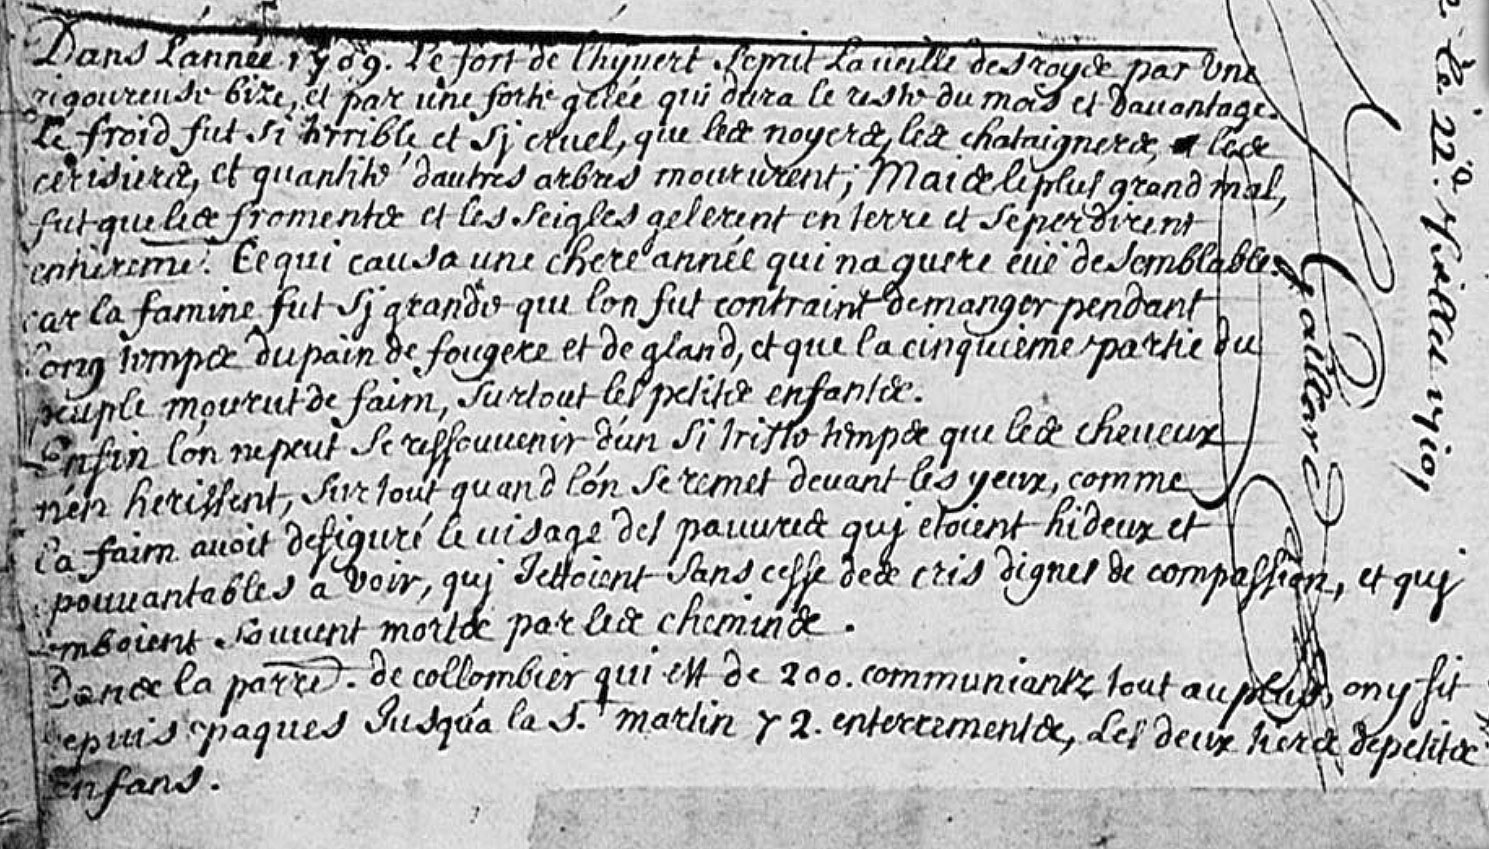 Dans l'année 1709. le fort de lhyvert se prit la veille des roys par une
rigoureuse bize, et par une forte gelée qui dura le reste du mois et davantage.
Le froid fut si terrible et sj cruel, que les noyers, les chataigners, les
cerisiers, et quantité dautres arbres moururent; Mais le plus grand mal,
fut que les froments et les seigles gelerent en terre et se perdirent
entieremt. Ce qui causa une chere année qui na guere eüe de semblable.
car la famine fut sj grande que lon fut contraint de manger pendant
long temps du pain de fougere et de gland, et que la cinquieme partie du
peuple mourut de faim, surtout les petits enfants.
Enfin lon ne peut se ressouvenir d'un si triste temps que les cheveux
n'en herissent, surtout quand lon se remet devant les yeux, comme
la faim avoit defiguré le visage des pauvres quj etoient hideux et
epouvantables a voir, quj Jettoient sans cesse des cris dignes de compassion, et quj
tomboient souvent morts par les chemins.
Dans la parre. de collombier qui est de 200. communiants tout au plus, on y fit
depuis paques Jusqu'a la S. martin 72. enterrements, Les deux tiers de petits
enfans.
Gaillard
le 22e. Juillet 1709